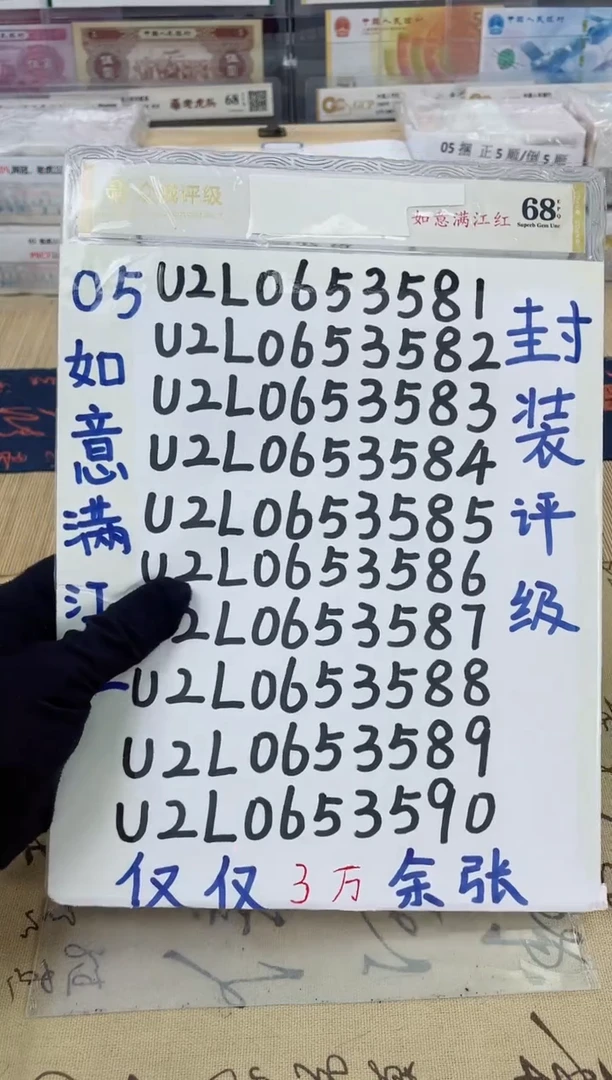 中国人民银行
中国人民银行
中国人民银行
68
05 捆 正5顺/倒5顺
评级
如意满江红
68
EPQ
Superb Gem Unc
05如意满江
U2L0653581
U2L0653582
U2L0653583
U2L0653584
U2L0653585
U2L0653586
2L0653587
U2L0653588
U2L0653589
U2L0653590
封装评级
仅仅3万余张